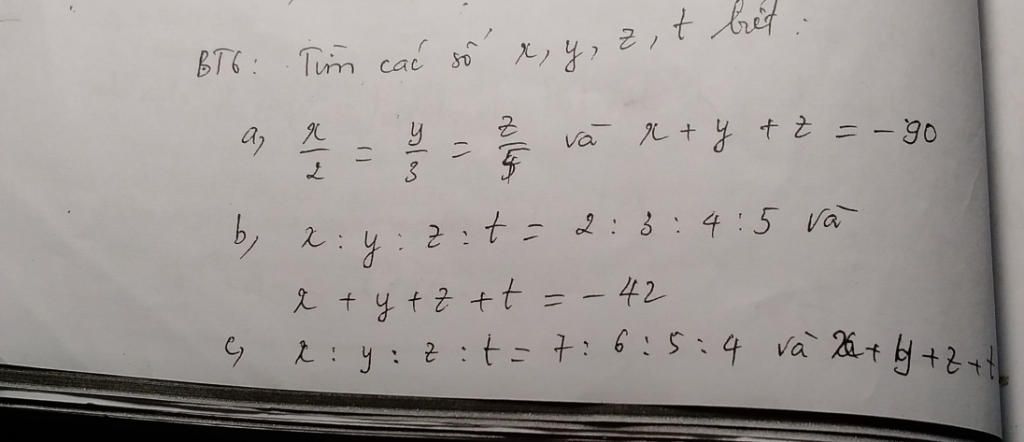 BT6: Tìm các số x, y, z, t biết:
a, x/2 = y/3 = z/5 và x + y + z = -90
b, x : y : z : t = 2 : 3 : 4 : 5 và
x + y + z + t = -42
c, x : y : z : t = 7 : 6 : 5 : 4 và x + y + z + t